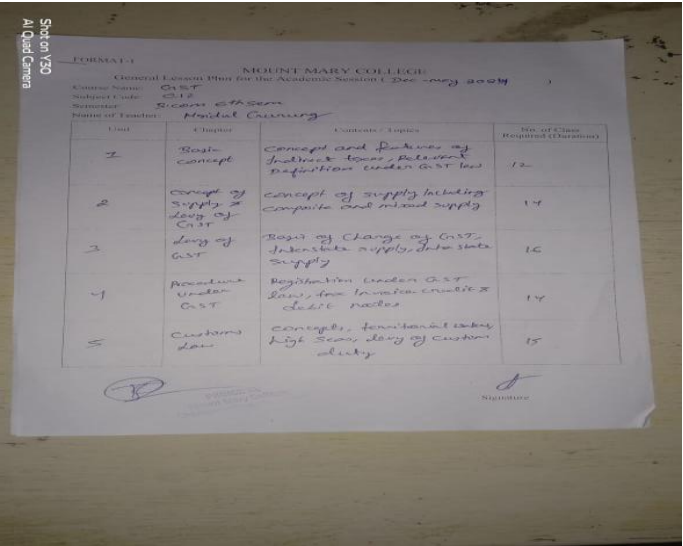 Shot on Y30
AI Quad Camera
FORMAT-1
MOUNT MARY COLLEGE
General Lesson Plan for the Academic Session ( Dec - may )
Course Name: GST
Subject Code: C-12
Semester: B.com 6th sem
Name of Teacher: Gurung
Unit Chapter Contents / Topics No. of Class Required (Duration)
1 Basic concept Concept and features of Indirect taxes, Relevant Definition under GST law 12
2 Concept of Supply & Levy of GST Concept of supply including composite and mixed supply 14
3 Levy of GST Basis of Charge of GST, Interstate supply, Intra state Supply 16
4 Procedure under GST Registration under GST law, tax invoice credit & debit notes 14
5 Customs Law Concepts, territorial water, high Seas, levy of custom duty 15
Signature